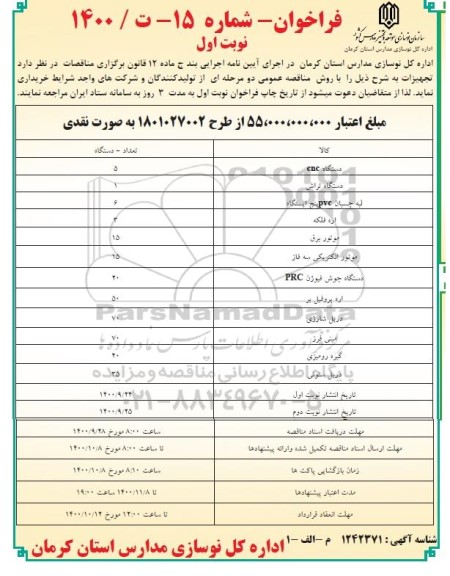 فراخوان- شماره ۱۵- ت / ۱۴۰۰
نوبت اول
سازمان نوسازی، توسعه و تجهیز مدارس کشور
اداره کل نوسازی مدارس استان کرمان
اداره کل نوسازی مدارس استان کرمان در اجرای آیین نامه اجرایی بند ج ماده ۱۲ قانون برگزاری مناقصات در نظر دارد
تجهیزات به شرح ذیل را با روش مناقصه عمومی دو مرحله ای از تولیدکنندگان و شرکت های واجد شرایط خریداری
نماید. لذا از متقاضیان دعوت میشود از تاریخ چاپ فراخوان نوبت اول به مدت ۳ روز به سامانه ستاد ایران مراجعه نمایند.
مبلغ اعتبار ۵۵,۰۰۰,۰۰۰,۰۰۰ از طرح ۱۸۰۱۰۲۷۰۰۲ به صورت نقدی
کالا تعداد - دستگاه
دستگاه cnc ۵
دستگاه تراش ۱
لبه چسبان pvc پنج ایستگاه ۶
اره فلکه ۳
موتور برق ۱۵
موتور الکتریکی سه فاز ۱۵
دستگاه جوش فیوژن PRC ۲۰
اره پروفیل بر ۵۰
دریل شارژی ۷۰
مینی فرز ۷۰
گیره رومیزی ۴۰
دریل ستونی ۳۵
تاریخ انتشار نوبت اول ۱۴۰۰/۹/۲۴
تاریخ انتشار نوبت دوم ۱۴۰۰/۹/۲۵
مهلت دریافت اسناد مناقصه ساعت ۸:۰۰ مورخ ۱۴۰۰/۹/۲۸
مهلت ارسال اسناد مناقصه تکمیل شده وارائه پیشنهادها تا ساعت ۸:۰۰ مورخ ۱۴۰۰/۱۰/۸
زمان بازگشایی پاکت ها ساعت ۸:۱۰ مورخ ۱۴۰۰/۱۰/۸
مدت اعتبار پیشنهادها تا ۱۴۰۰/۱۱/۸ ساعت ۱۹:۰۰
مهلت انعقاد قرارداد تا ساعت ۱۴:۰۰ مورخ ۱۴۰۰/۱۰/۱۴
ParsNamadData
مرکز فرآوری اطلاعات پارس نماد داده ها
پایگاه اطلاع رسانی مناقصه و مزایده
۰۲۱-۸۸۳۴۹۶۷۰-۵
شناسه آگهی : ۱۲۴۲۳۷۱ م -الف -۱
اداره کل نوسازی مدارس استان کرمان